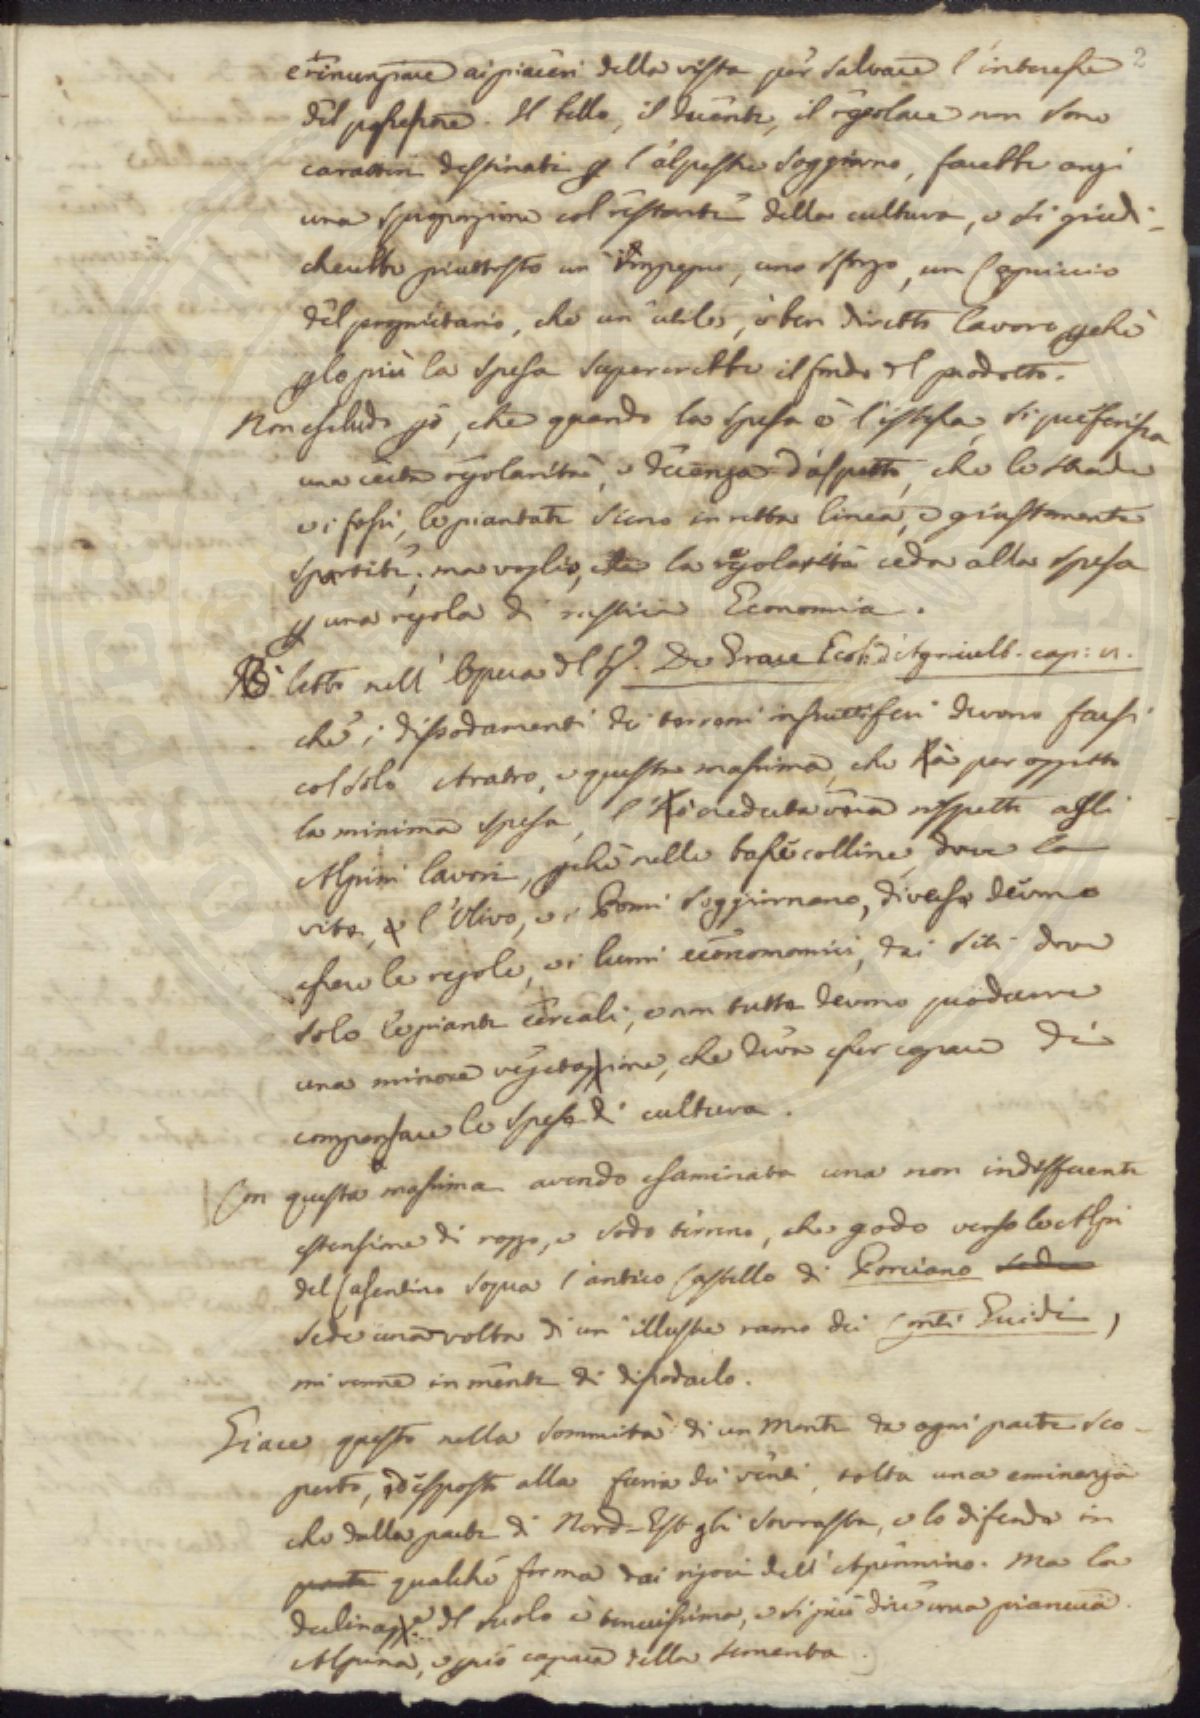 2
e rinunziare ai piaceri della vista per salvare l'interesse
del possessore. Il bello, il decente, il regolare non sono
caratteri destinati p l'alpestre soggiorno, farebbe anzi
una sproporzione col restante della cultura, e si giudi-
cherebbe piuttosto un impegno, uno sforzo, un capriccio
del proprietario, che un utile, e ben diretto lavoro pchè
plo più la spesa supererebbe il fondo del prodotto.
Non escludo pò, che quando la spesa è l'istessa, si preferisca
una certa regolarità, e decenza d'aspetto, che le strade
e i fossi, le piantate sieno in retta linea, e giustamente
spartite; ma voglio, che la regolarità ceda alla spesa
p una regola di rustica Economia.
Hò letto nell'Opera del Sr. De Grace Ecol: d'Agricult. cap: VI.
che i dissodamenti dei terreni infruttiferi devono farsi
col solo Aratro, e questa massima, che à per oggetto
la minima spesa, l'ò creduta vera rispetto agli
Alpini lavori, pchè nelle basse colline, dove la
vite, e l'Ulivo, e i Pomi soggiornano, diverse devono
essere le regole, e i lumi economomici, dai siti dove
solo le piante cereali, e non tutte devono produrre
una minore vegetazione, che deva esser capace di
compensare le spese di cultura.
Con questa massima avendo esaminata una non indifferente
estensione di rozzo, e sodo terreno, che godo verso le Alpi
del Casentino sopra l'antico Castello di Porciano sede
sede una volta di un'illustre ramo dei Conti Guidi,
mi venne in mente di dissodarlo.
Giace questo nella sommità di un Monte da ogni parte sco-
perto, ed esposto alla furia dei venti, tolta una eminenza
che dalla parte di Nord-Est gli sovrasta, e lo difende in
parte qualche forma dai rigori dell'Apennino. Ma la
del suolo è tenuissima, e si può dire una pianura
Alpina, e pciò capace della sementa.